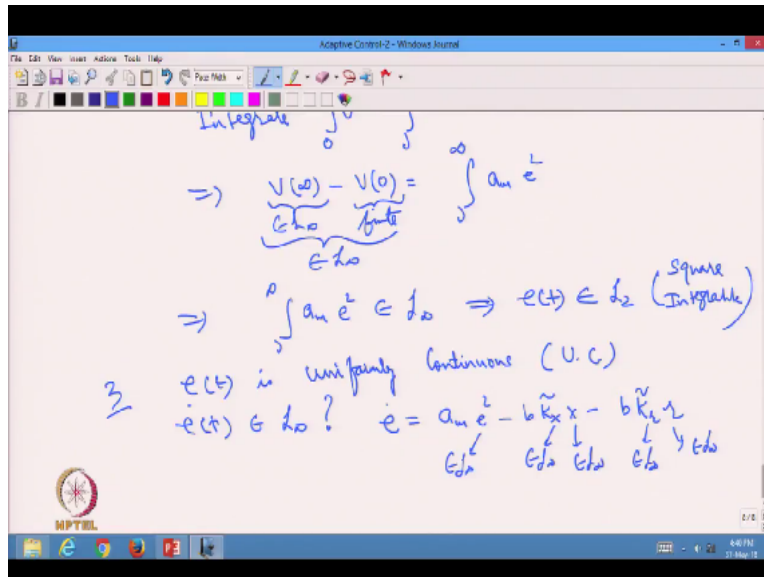 Adaptive Control-2 - Windows Journal
File Edit View Insert Actions Tools Help
B I
Integrate ∫ V̇ ∫
0
⇒ V(∞) - V(0) = ∫₀^∞ aₘ e²
∈ L∞ finite
∈ L∞
⇒ ∫₀^∞ aₘ e² ∈ L∞ ⇒ e(t) ∈ L₂ (Square Integrable)
3 e(t) is uniformly Continuous (U.C)
ė(t) ∈ L∞ ? ė = aₘ e - b k̃ₓ x - b k̃ᵣ r
∈L∞ ∈L∞ ∈L∞ ∈L∞ ∈L∞
NPTEL
4:40 PM
31-May-18